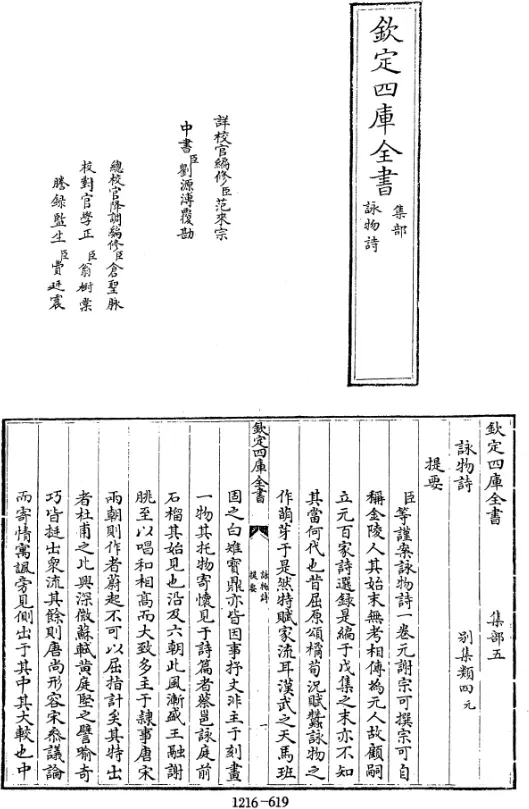 欽定四庫全書
集部
詠物詩
詳校官編修臣范來宗
中書臣劉源溥覆勘
總校官降調編修臣倉聖脉
校對官學正臣翁樹棠
謄錄監生臣賈廷震
欽定四庫全書
集部五
詠物詩
別集類四元
提要
臣等謹案詠物詩一卷元謝宗可撰宗可自
稱金陵人其始末無考相傳為元人故顧嗣
立元百家詩選錄是編于戊集之末亦不知
其當何代也昔屈原頌橘荀況賦蠶詠物之
作萌芽于是然特賦家流耳漢武之天馬班
欽定四庫全書
詠物詩
提要
一
固之白雉寳鼎亦皆因事抒文非主于刻畫
一物其托物寄懷見于詩篇者蔡邕詠庭前
石榴其始見也沿及六朝此風漸盛王融謝
朓至以唱和相高而大致多主于隸事唐宋
兩朝則作者蔚起不可以屈指計矣其特出
者杜甫之比興深微蘇軾黃庭堅之譬喻奇
巧皆挺出衆流其餘則唐尚形容宋參議論
而寄情寓諷旁見側出于其中其大較也中
1216-619